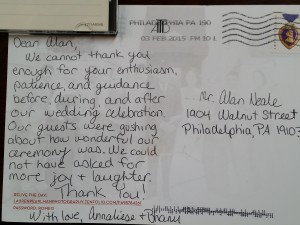 PHILADELPHIA PA 190
02 FEB 2015 PM 10 L
Dear Alan,
We cannot thank you
enough for your enthusiasm,
patience, guidance
during, before, and after
our wedding celebration
Our guests were gushing
about how wonderful our
ceremony was. We could
not have asked for
more joy + laughter.
Thank you
With love,
Mr. Alan
Walnut Street
Philadelphia, PA 19103
RELIVE THE DAY